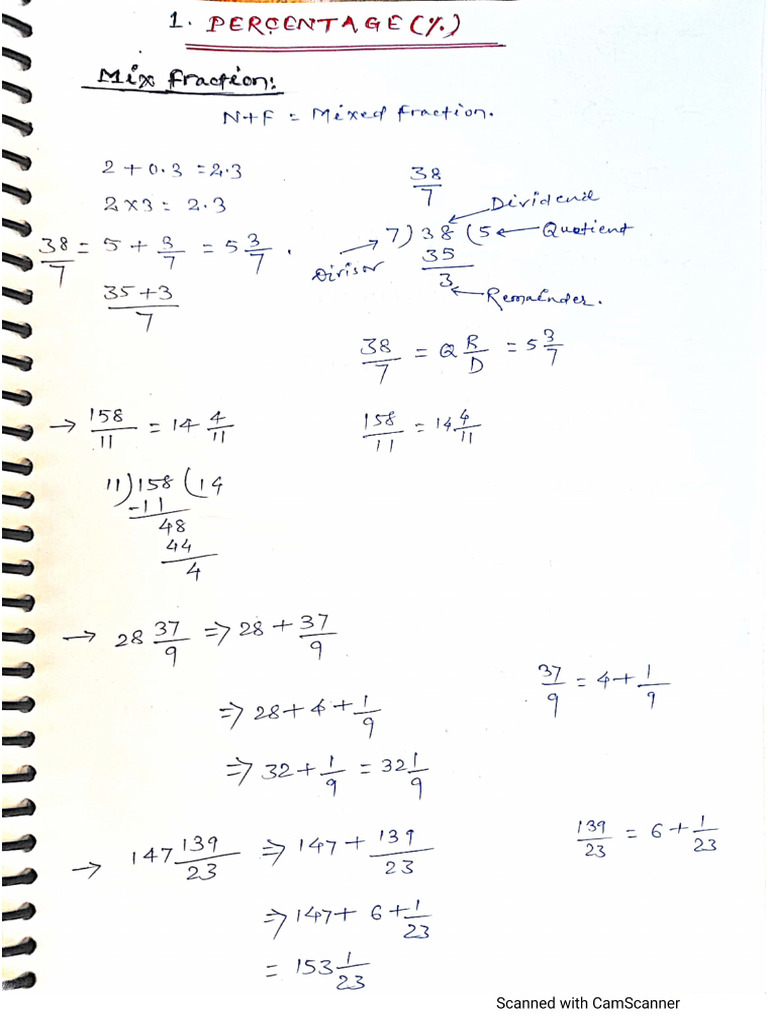 1. PERCENTAGE(%)
Mix fraction:
N+F = Mixed fraction.
2 + 0.3 = 2.3
2 × 3 = 2.3
38/7 = 5 + 3/7 = 5 3/7 .
35+3/7
38/7
Dividend
7) 38 (5 Quotient
Divisor
35
3
Remainder.
38/7 = Q R/D = 5 3/7
→ 158/11 = 14 4/11
158/11 = 14 4/11
11)158(14
-11
48
44
4
→ 28 37/9 ⇒ 28 + 37/9
37/9 = 4 + 1/9
⇒ 28 + 4 + 1/9
⇒ 32 + 1/9 = 32 1/9
→ 147 139/23 ⇒ 147 + 139/23
139/23 = 6 + 1/23
⇒ 147 + 6 + 1/23
= 153 1/23
Scanned with CamScanner